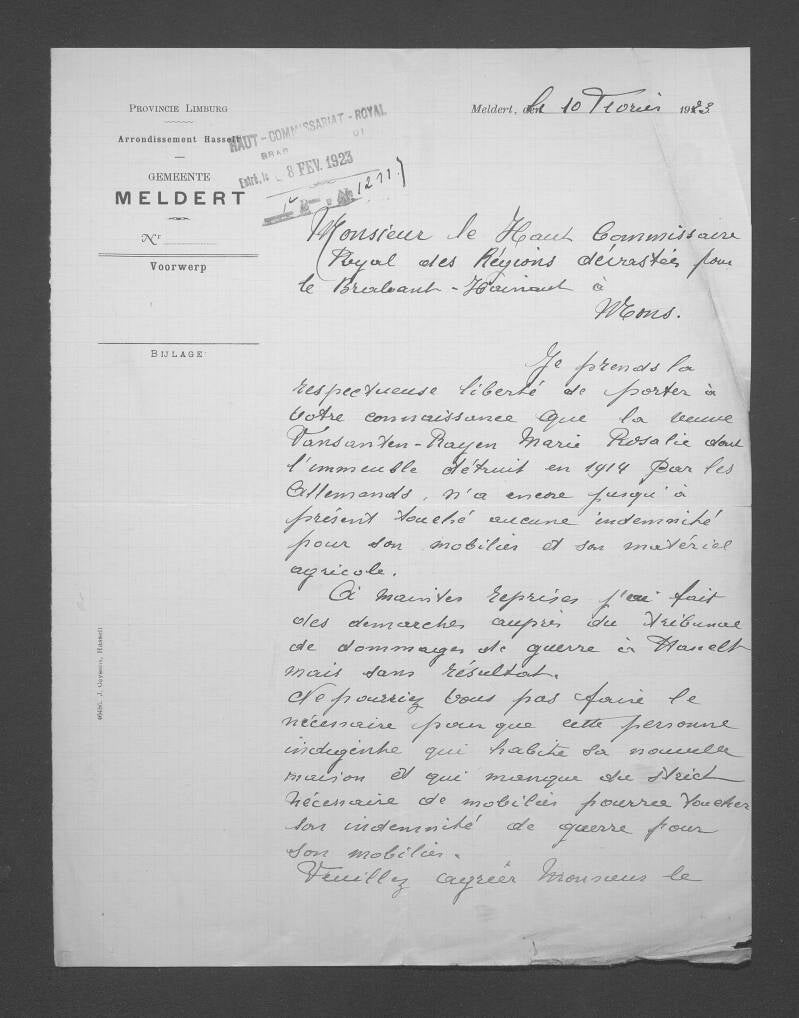 PROVINCIE LIMBURG
Arrondissement Hasselt
GEMEENTE
MELDERT
Nr
Voorwerp
BIJLAGE
46486. J. Ceysens, Hasselt
HAUT-COMMISSARIAT-ROYAL
BRAB
Entré, le 8 FEV. 1923
1211
Meldert, den le 10 Fevrier 1923
Monsieur le Haut Commissaire
Royal des Régions dévastées pour
le Brabant-Hainaut à
Mons.
Je prends la
respectueuse liberté de porter à
Votre connaissance que la veuve
Vansanten-Rayen Marie Rosalie dont
l'immeuble détruit en 1914 par les
Allemands, n'a encore jusqu'à
présent touché aucune indemnité
pour son mobilier et son matériel
agricole.
A maintes reprises j'ai fait
des demarches auprès du tribunal
de dommages de guerre à Hasselt
mais sans résultat.
Ne pourriez Vous pas faire le
nécessaire pour que cette personne
indigente qui habite sa nouvelle
maison et qui manque du strict
nécessaire de mobilier pourra toucher
son indemnité de guerre pour
son mobilier.
Veuillez agréer Monsieur le